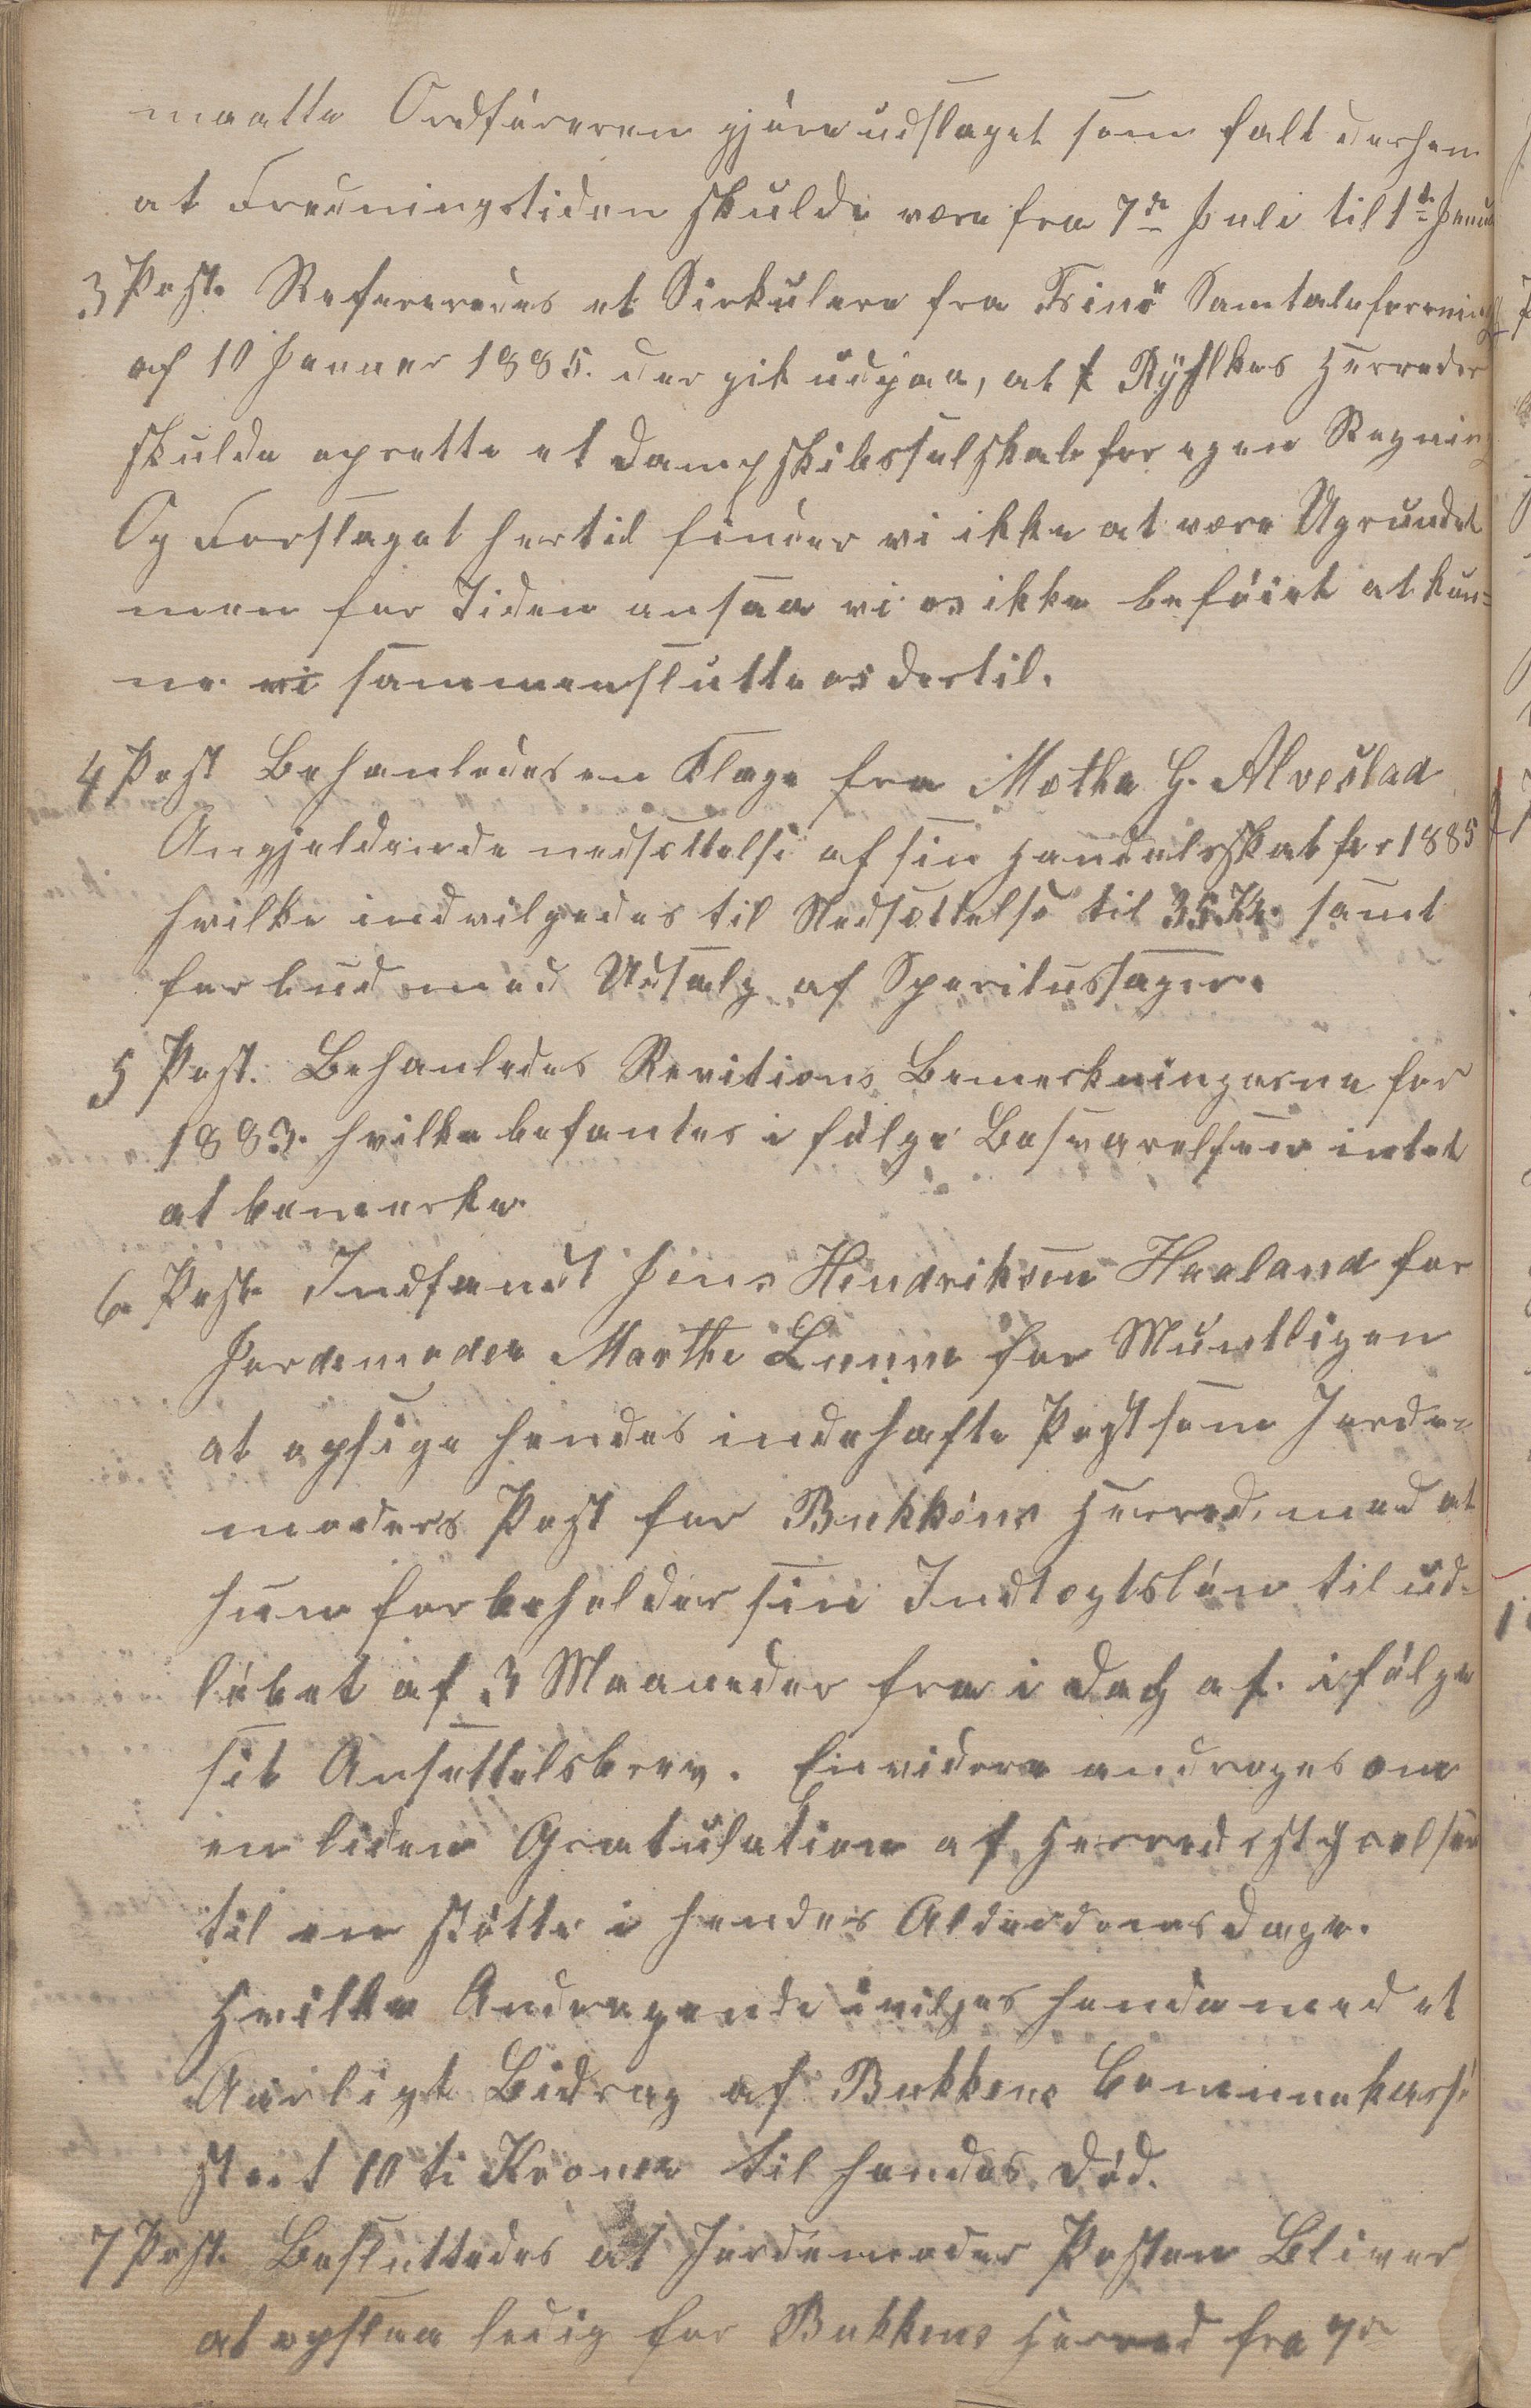 maatte Ordføreren gjøre udslaget som falt derhen
at Fredningstiden skulde være fra 7de Juli til 1te Januar
3 Post. Refereredes et Sirkulere fra Finø Samtaleforening
af 10 Januar 1885. der gik udpaa, at Ryfylkes Herreder
skulde oprette et Dampskibsselskab for egen Regning
Og Forslaget hertil finder vi ikke at være Ugrundet
men for Tiden ansaa vi os ikke beføiet at kun=
ne vi sammenslutte os dertil.
4 Post Behanledes en Klage fra Mothe H. Alvestad
Angjeldende nedsættelse af sin Handelsskat for 1885
hvilke indvilgedes til Nedsættelse til 35 Kr. samt
forbud med Udsalg af Speritussager.
5 Post. Behanledes Revitions Bemerkningerne for
1883. hvilke befantes i følge Besvarelsen intet
at bemerke.
6 Post. Indfandt Jens Hendriksen Haaland for
Jordemoder Marthe for Muntligen
at opsige hendes indehafte Post som Jorde=
moders Post for Bukkens Herred, med at
hun forbeholder sin Indtægtsløn til ud=
løbet af 3 Maaneder fra i Dag af. ifølge
sit Ansettelsbrev. Envidere androges om
en liden Gratulation af Herredsstyrelsen
til en støtte i hendes Alderdomsdage.
Hvilke Andragende ivilges hende med et
Aarligt Bidrag af Bukkens Comunekasse
stort 10 ti Kroner til hendes Død.
7 Post. Besluttedes at Jordemoder Posten Bliver
at opslaa ledig for Bukkens Herred fra 7de